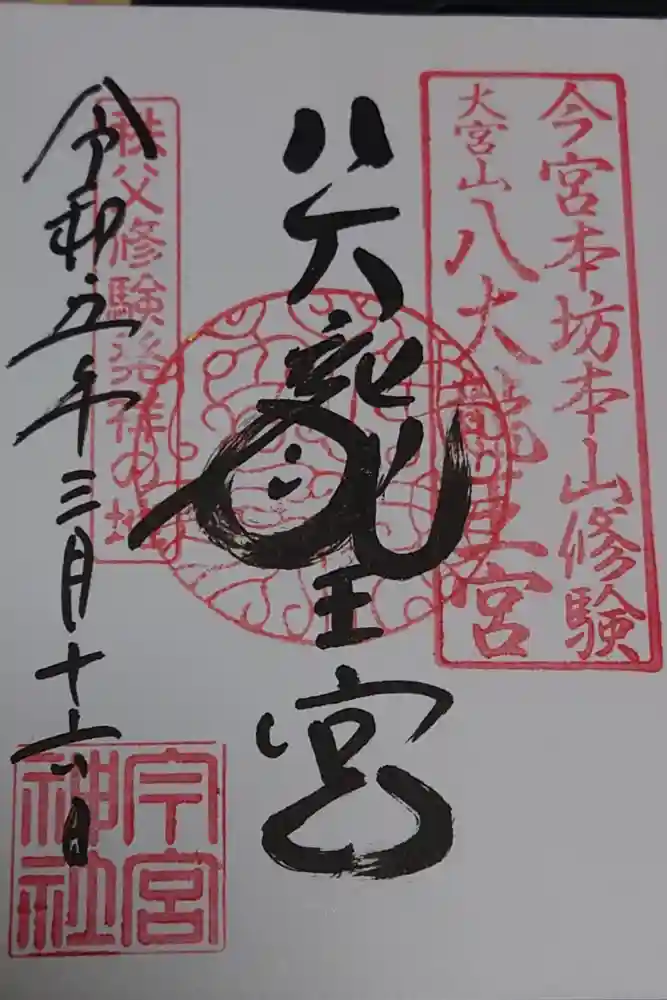 今宮本坊本山修験
大宮山八大龍王宮
八大龍王宮
秩父修験発祥の地
令和五年三月十六日
今宮神社